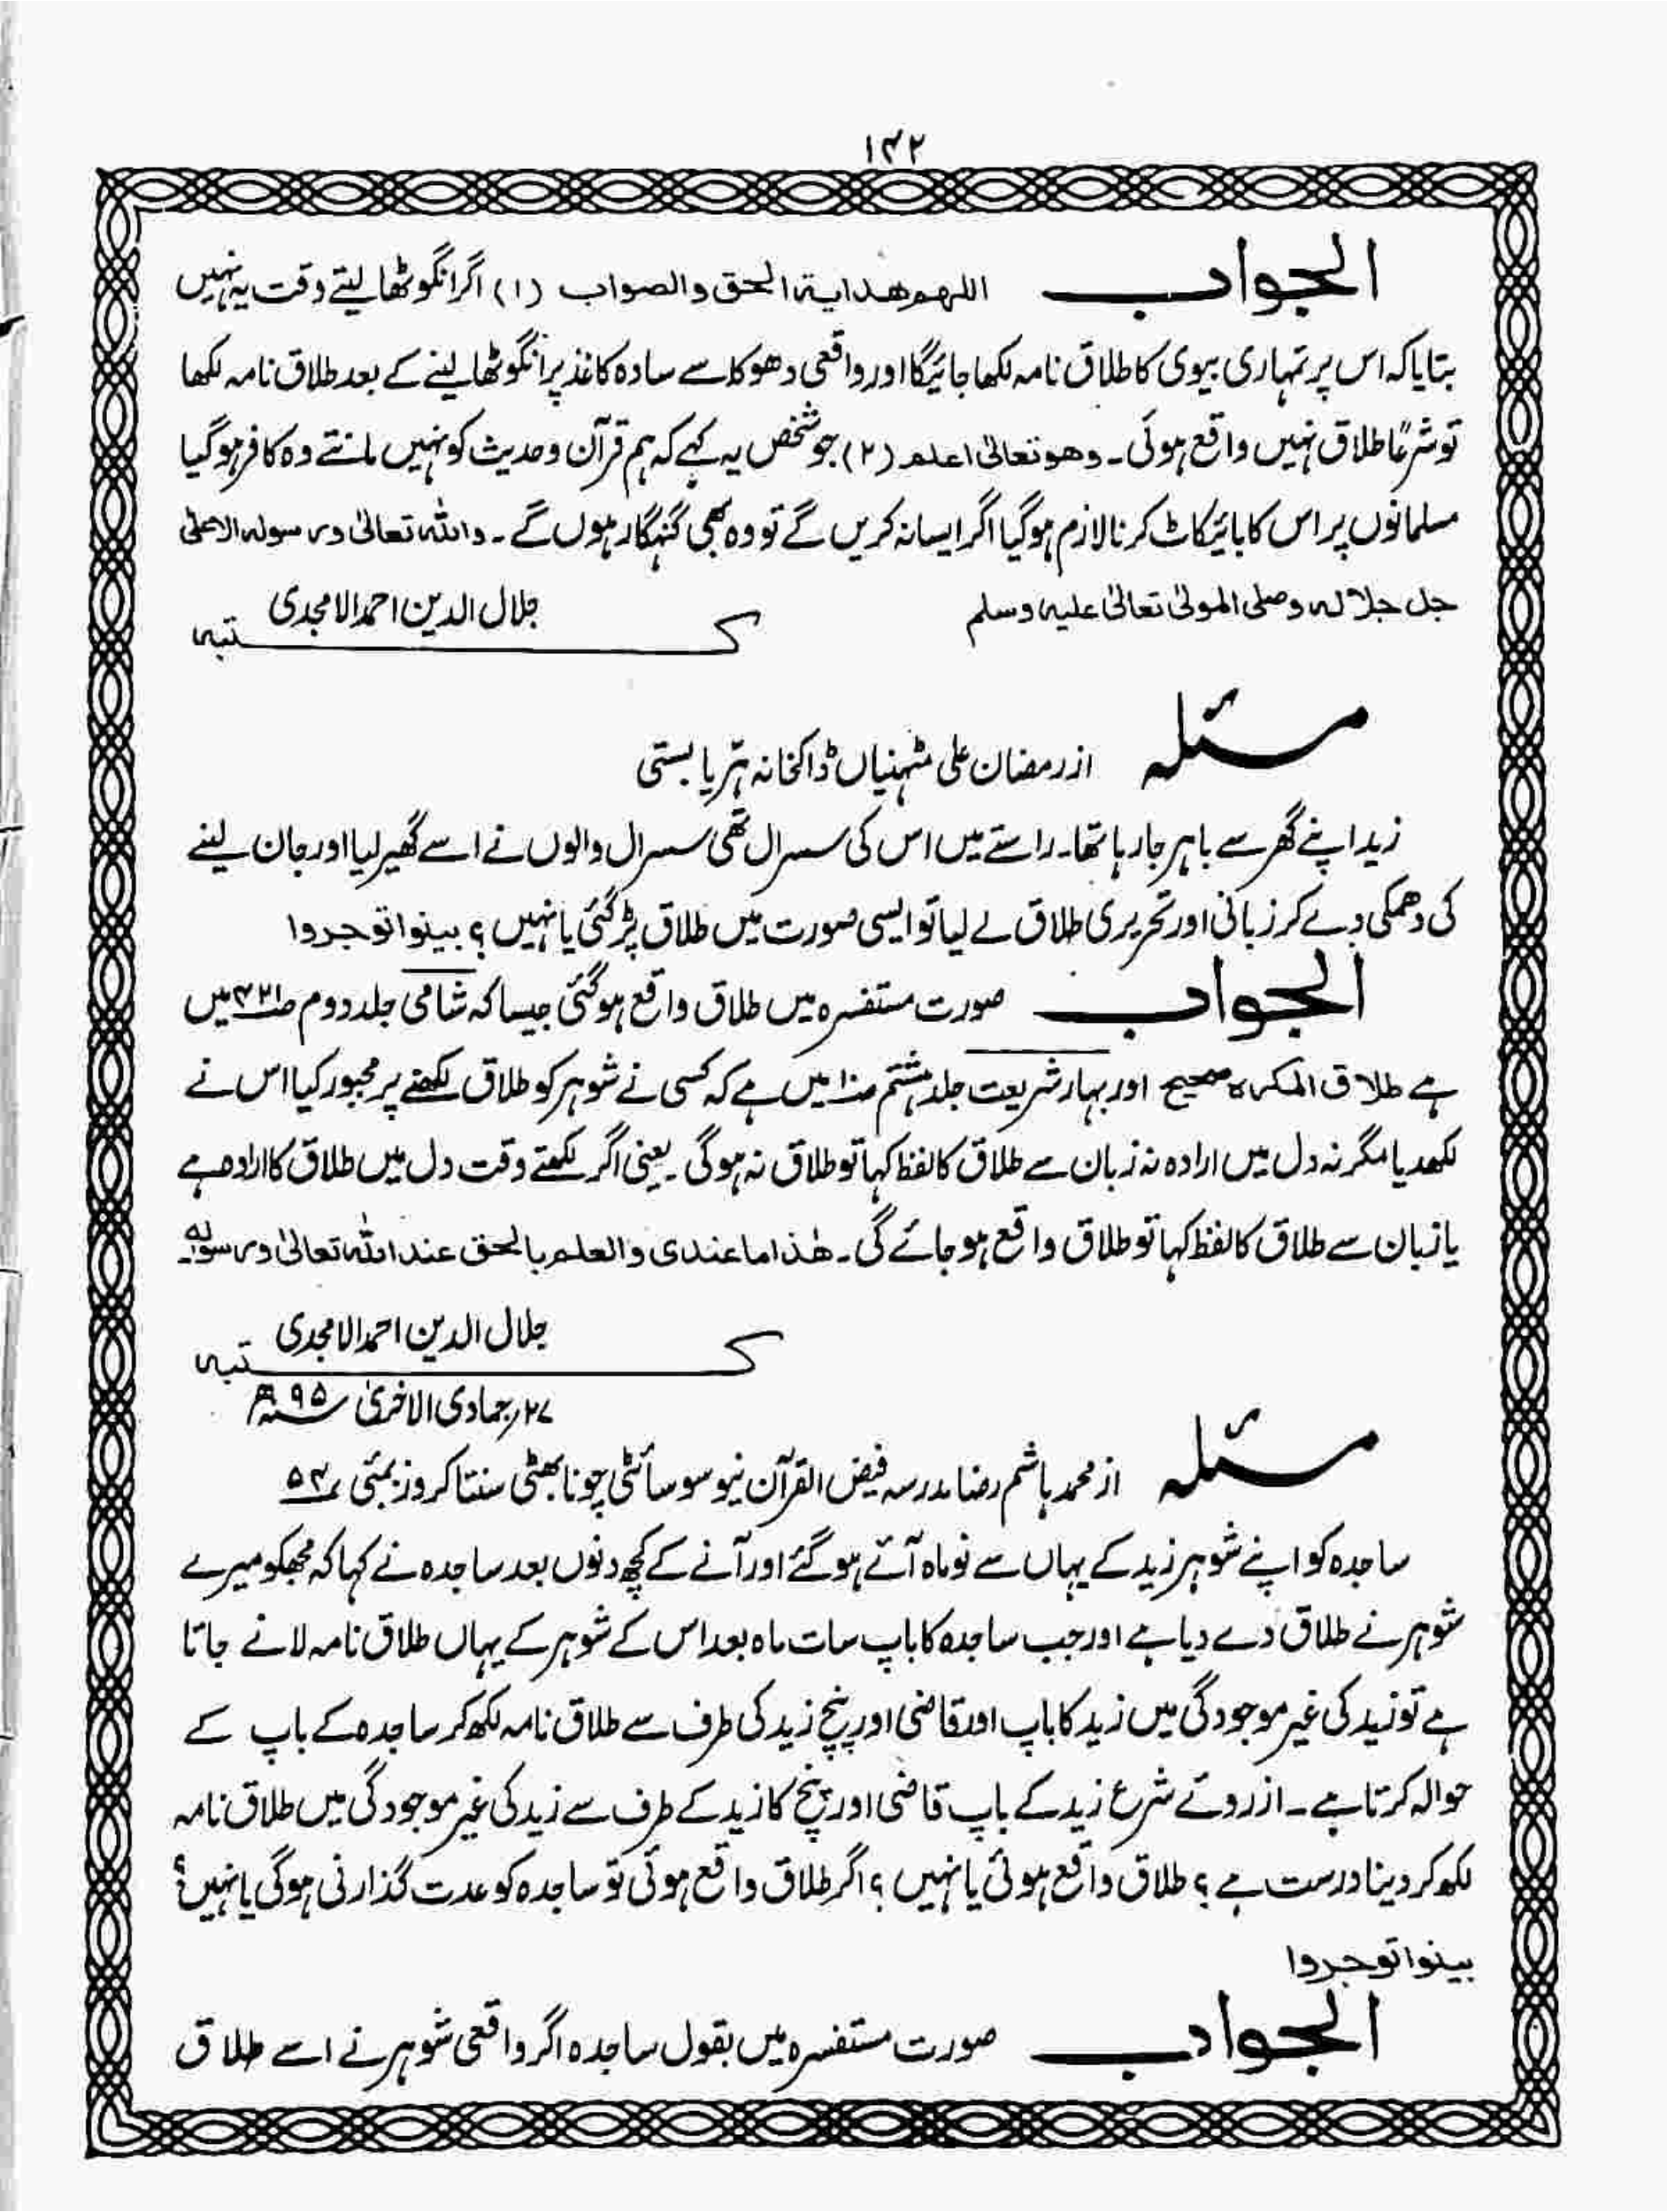 ۱۴۲
الجواب اللھم ھدایة الحق والصواب (۱) اگر انگوٹھا لیتے وقت یہ نہیں
بتایا کہ اس پر تمہاری بیوی کا طلاق نامہ لکھا جائیگا اور واقعی دھوکا سے سادہ کاغذ پر انگوٹھا لینے کے بعد طلاق نامہ لکھا
تو شرعًا طلاق نہیں واقع ہوئی۔ وھو تعالیٰ اعلم (۲) جو شخص یہ کہے کہ ہم قرآن وحدیث کو نہیں مانتے وہ کافر ہوگیا
مسلمانوں پر اس کا بائیکاٹ کرنا لازم ہوگیا اگر ایسا نہ کریں گے تو وہ بھی گنہگار ہوں گے۔ واللہ تعالیٰ ورسولہ الاعلیٰ
جل جلالہ وصلی المولیٰ تعالیٰ علیہ وسلم
جلال الدین احمد الامجدی
کتبہ
مسئلہ از رمضان علی مٹہنیاں ڈاکخانہ ہتریا بستی
زید اپنے گھر سے باہر جا رہا تھا۔ راستے میں اس کی سسرال تھی سسرال والوں نے اسے گھیر لیا اور جان لینے
کی دھمکی دے کر زبانی اور تحریری طلاق لے لیا تو ایسی صورت میں طلاق پڑ گئی یا نہیں؟ بینوا توجروا
الجواب صورت مستفسرہ میں طلاق واقع ہوگئی جیسا کہ شامی جلد دوم ص۴۲۱ میں
ہے طلاق المکرہ صحیح اور بہار شریعت جلد ہشتم ص۱۰ میں ہے کہ کسی نے شوہر کو طلاق لکھنے پر مجبور کیا اس نے
لکھدیا مگر نہ دل میں ارادہ نہ زبان سے طلاق کا لفظ کہا تو طلاق نہ ہوگی۔ یعنی اگر لکھتے وقت دل میں طلاق کا ارادہ ہے
یا زبان سے طلاق کا لفظ کہا تو طلاق واقع ہو جائے گی۔ ھٰذا ما عندی والعلم بالحق عند اللہ تعالیٰ ورسولہ
جلال الدین احمد الامجدی
کتبہ
۲۷؍ جمادی الاخریٰ ۹۵ھ
مسئلہ از محمد ہاشم رضا مدرسہ فیض القرآن نیو سوسائٹی چونا بھٹی سنتا کروز بمبئی ۵۴
ساجدہ کو اپنے شوہر زید کے یہاں سے نو ماہ آئے ہو گئے اور آنے کے کچھ دنوں بعد ساجدہ نے کہا کہ مجھکو میرے
شوہر نے طلاق دے دیا ہے اور جب ساجدہ کا باپ سات ماہ بعد اس کے شوہر کے یہاں طلاق نامہ لانے جاتا
ہے تو زید کی غیر موجودگی میں زید کا باپ اور قاضی اور پنچ زید کی طرف سے طلاق نامہ لکھ کر ساجدہ کے باپ کے
حوالہ کرتا ہے۔ از روئے شرع زید کے باپ قاضی اور پنچ کا زید کے طرف سے زید کی غیر موجودگی میں طلاق نامہ
لکھ کر دینا درست ہے؟ طلاق واقع ہوئی یا نہیں؟ اگر طلاق واقع ہوئی تو ساجدہ کو عدت گذارنی ہوگی یا نہیں؟
بینوا توجروا
الجواب صورت مستفسرہ میں بقول ساجدہ اگر واقعی شوہر نے اسے طلاق